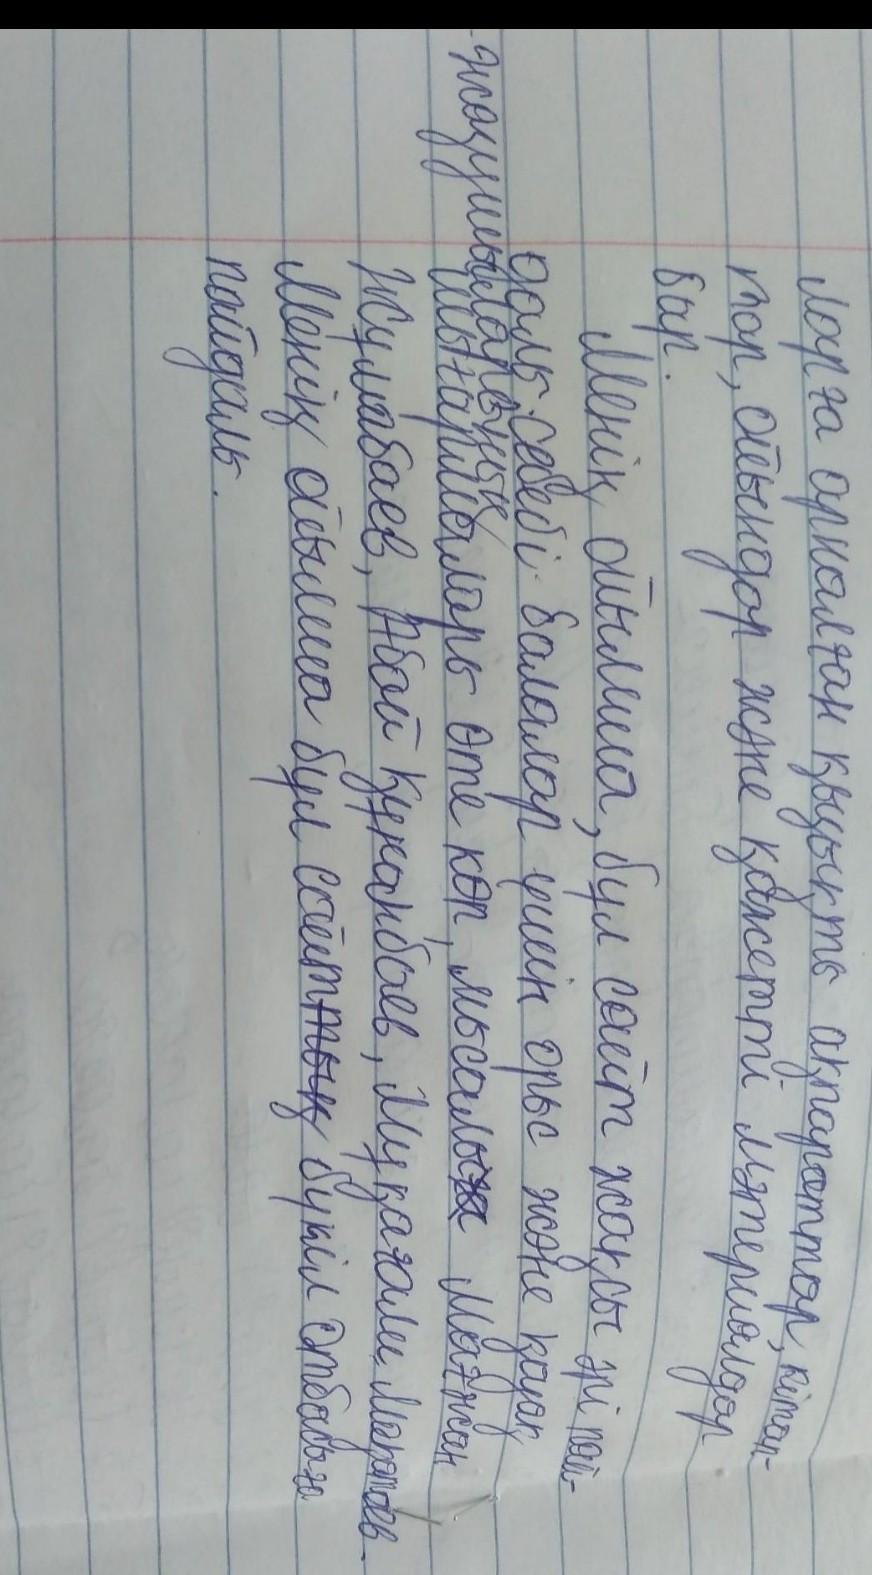 ларға арналған қызықты ақпараттар, кітап-
тар, ойындар және қажетті мәтериалдар
бар.
Менің ойымша, бұл сайт жақсы әрі пай-
далы. себебі балалар үшін орыс және қазақ
жазушыларының
шығармалары өте көп, мысалы Мағжан
Жұмабаев, Абай Құнанбаев, Мұқағали Мақатаев.
Менің ойымша бұл сайттың бүкіл отбасыға
пайдалы.